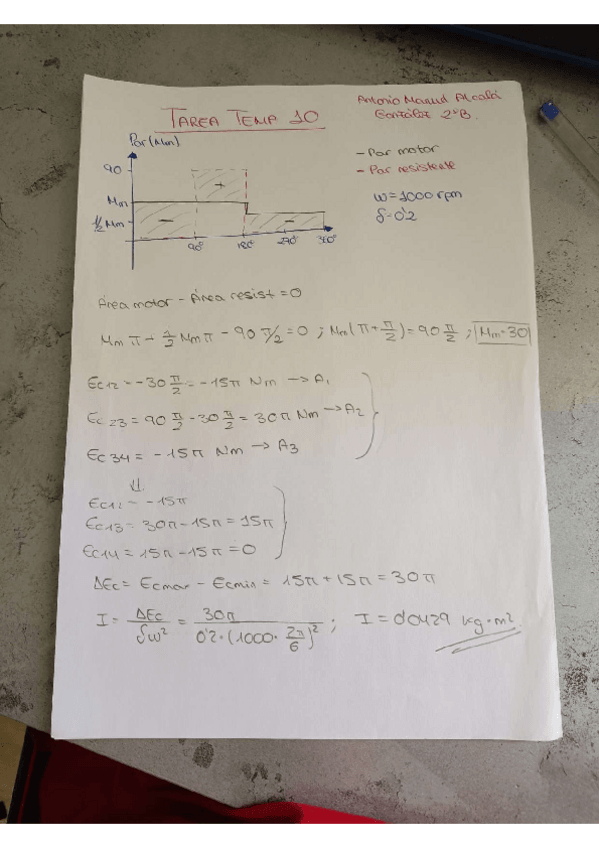 TAREA TEMA 10
Antonio Manuel Alcalá
González 2ºB
Par (Nm)
90
Mm
1/2 Mm
90° 180° 270° 360°
- Par motor
- Par resistente
ω = 1000 rpm
δ = 0'2
Área motor - Área resist = 0
Mm π + 1/2 Mm π - 90 π/2 = 0 ; Mm (π + π/2) = 90 π/2 ; Mm = 30
Ec12 = -30 π/2 = -15π Nm → A1
Ec23 = 90 π/2 - 30 π/2 = 30π Nm → A2
Ec34 = -15π Nm → A3
⇓
Ec12 = -15π
Ec13 = 30π - 15π = 15π
Ec14 = 15π - 15π = 0
ΔEc = Ecmax - Ecmin = 15π + 15π = 30π
I = ΔEc / δω² = 30π / 0'2 · (1000 · 2π/6)² ; I = 0'0429 kg·m²